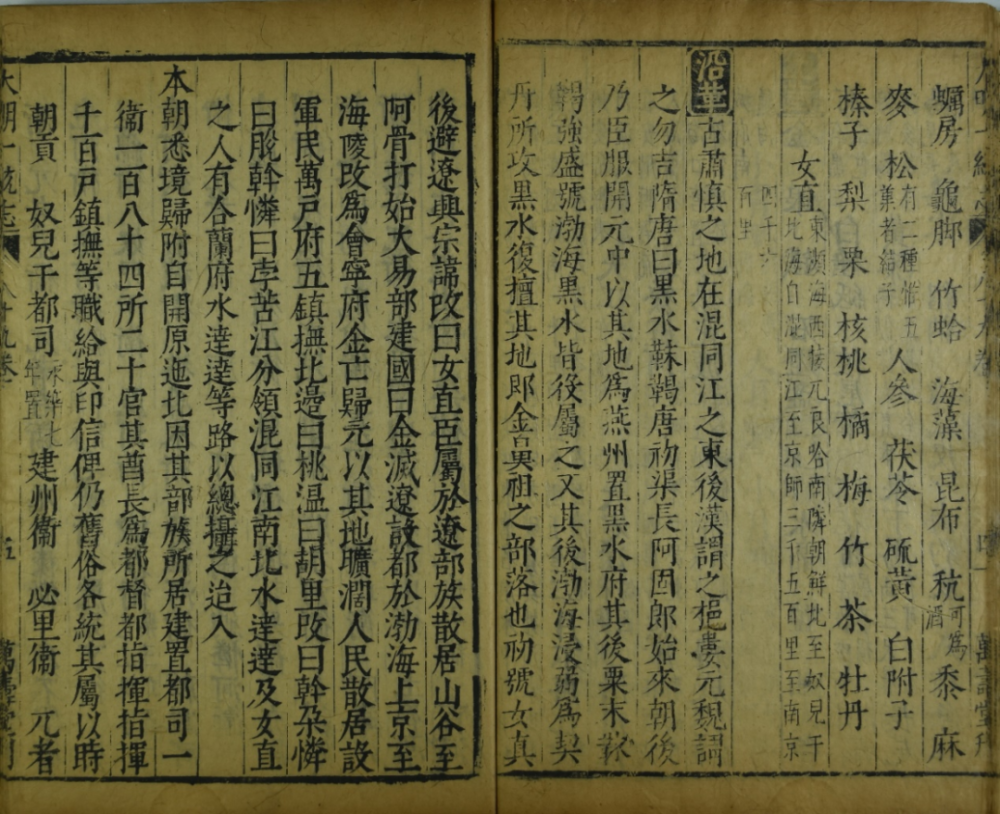 蠣房 龜脚 竹蛤 海藻 昆布 秔可爲酒 黍 麻
麥 松有二種惟五葉者結子 人參 茯苓 硫黃 白附子
榛子 梨 栗 核桃 橘 梅 竹 茶 牡丹
女直東瀕海西接兀良哈南隣朝鮮北至奴兒干
北海自混同江至京師三千五百里至南京
四千六
百里
沿革古肅慎之地在混同江之東後漢謂之挹婁元魏謂
之勿吉隋唐曰黑水靺鞨唐初渠長阿固郎始來朝後
乃臣服開元中以其地爲燕州置黑水府其後粟末靺
鞨強盛號渤海黑水皆役屬之又其後渤海浸弱爲契
丹所攻黑水復擅其地即金㒷祖之部落也初號女真
後避遼興宗諱改曰女直臣屬於遼部族散居山谷至
阿骨打始大易部建國曰金滅遼設都於渤海上京至
海陵改爲會寧府金亡歸元以其地曠濶人民散居設
軍民萬戸府五鎮撫北邊曰桃温曰胡里改曰斡朵憐
曰脫斡憐曰孛苦江分領混同江南北水達達及女直
之人有合蘭府水達達等路以總攝之迨入
本朝悉境歸附自開原迤北因其部族所居建置都司一
衞一百八十四所二十官其酋長爲都督都指揮指揮
千百戸鎮撫等職給與印信俾仍舊俗各統其屬以時
朝貢 奴兒干都司永樂七年置 建州衞 必里衞 兀者
大明一統志 八十九卷 五 萬壽堂刊